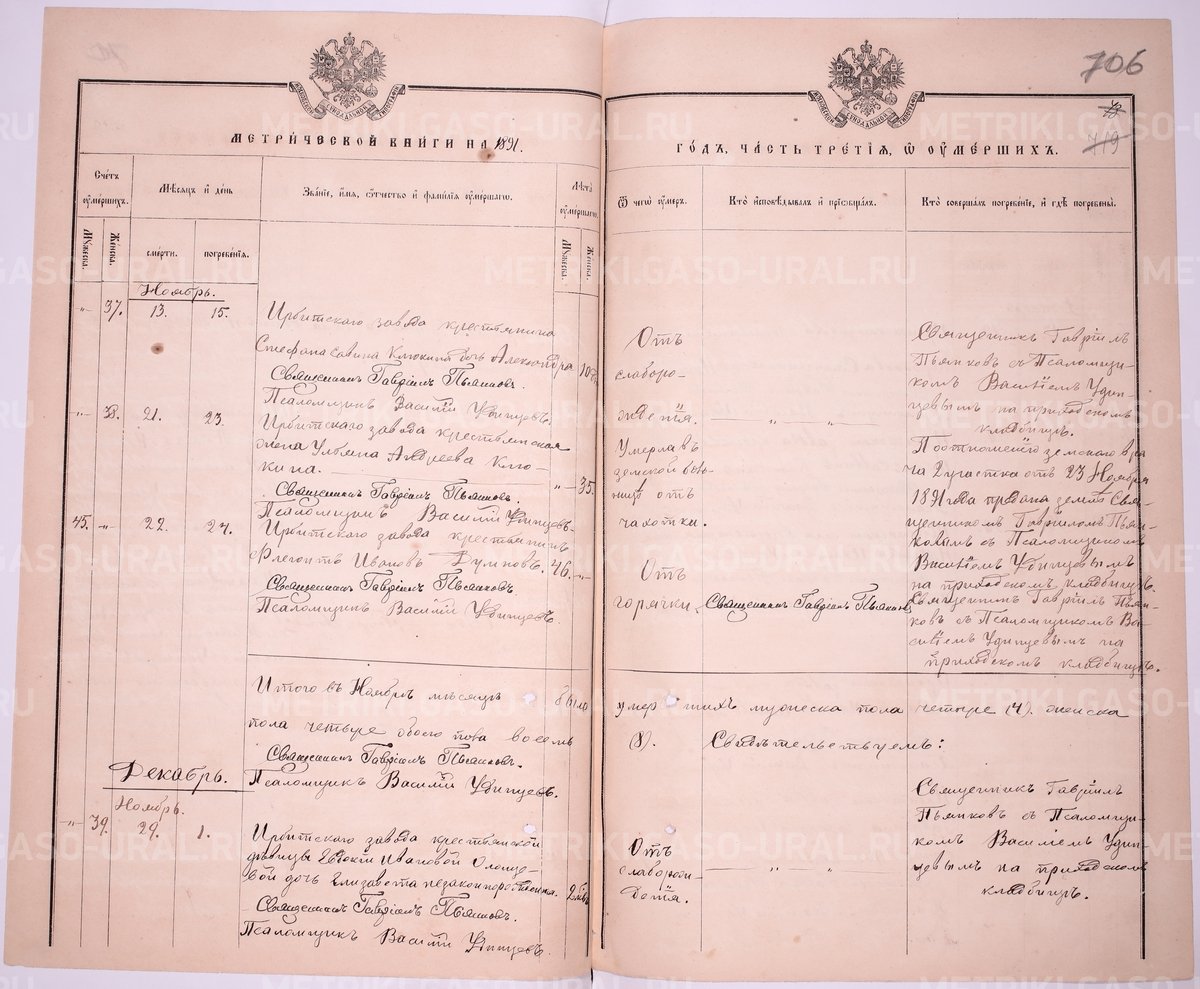 706
43
719
МЕТРИ́ЧЕСКОЙ КНИГИ НА 1891.
ГО́ДЪ, ЧА́СТЬ ТРЕ́ТІѦ, Ѿ ОУМЕ́РШИХЪ.
Сче́тъ оумершихъ.
Мѣсяцъ и де́нь
Зва́ніе, и́мя, о́тчество и фами́лія оуме́ршагѡ.
Лѣта оумершагѡ.
Ѿ чегѡ̀ оу́меръ.
Кто̀ исповѣ́дывалъ и пріѡбща́лъ.
Кто̀ соверша́лъ погребе́ніе, и гдѣ̀ погребены̀.
Мужеска.
Женска.
сме́рти.
погребе́нія.
Мужеска.
Женска.
Ноябрь.
" 37. 13. 15.
Ирбитскаго завода крестьянина
Стефана Савина Клюкина дочь Александра
Священникъ Гавріилъ Пьянковъ.
Псаломщикъ Василій Удинцевъ.
Отъ
слаборо-
ждения.
" "
Священникъ Гавріилъ
Пьянковъ съ Псаломщи-
комъ Василіемъ Удин-
цевымъ на приходскомъ
кладбищѣ.
" 38. 21. 23.
Ирбитскаго завода крестьянская
жена Ульяна Андреева Клю-
кина.
" 35.
Священникъ Гавріилъ Пьянковъ.
Псаломщикъ Василій Удинцевъ.
Умерла въ
земской боль-
ницѣ отъ
чахотки.
По отношенію земскаго вра
ча 2 участка отъ 23 Ноября
1891 года предана землѣ Свя-
щенникомъ Гавріиломъ Пьян-
ковымъ съ Псаломщикомъ
Василіемъ Удинцевымъ
на приходскомъ кладбищѣ.
45. " 22. 24.
Ирбитскаго завода крестьянинъ
Флегонтъ Ивановъ 46. "
Священникъ Гавріилъ Пьянковъ.
Псаломщикъ Василій Удинцевъ.
Отъ
горячки
Священникъ Гавріилъ Пьянковъ
Священникъ Гавріилъ Пьян-
ковъ съ Псаломщикомъ Ва-
силіемъ Удинцевымъ на
приходскомъ кладбищѣ.
Итого въ Ноябрѣ мѣсяцѣ было
умершихъ мужеска пола четыре (4). женска
пола четыре обоего пола восемь
(8). Свидѣтельствуемъ:
Священникъ Гавріилъ Пьянковъ.
Псаломщикъ Василій Удинцевъ.
Декабрь.
Ноябрь.
" 39. 29. 1.
Ирбитскаго завода крестьянской
дѣвицы Евдокіи Ивановой
дочь Елизавета незаконнорожденная.
Священникъ Гавріилъ Пьянковъ.
Псаломщикъ Василій Удинцевъ.
Отъ
" "
Священникъ Гавріилъ
Пьянковъ съ Псаломщи-
комъ Василіемъ Удин-
цевымъ на приходскомъ
кладбищѣ.
METRIKI.GASO-URAL.RU